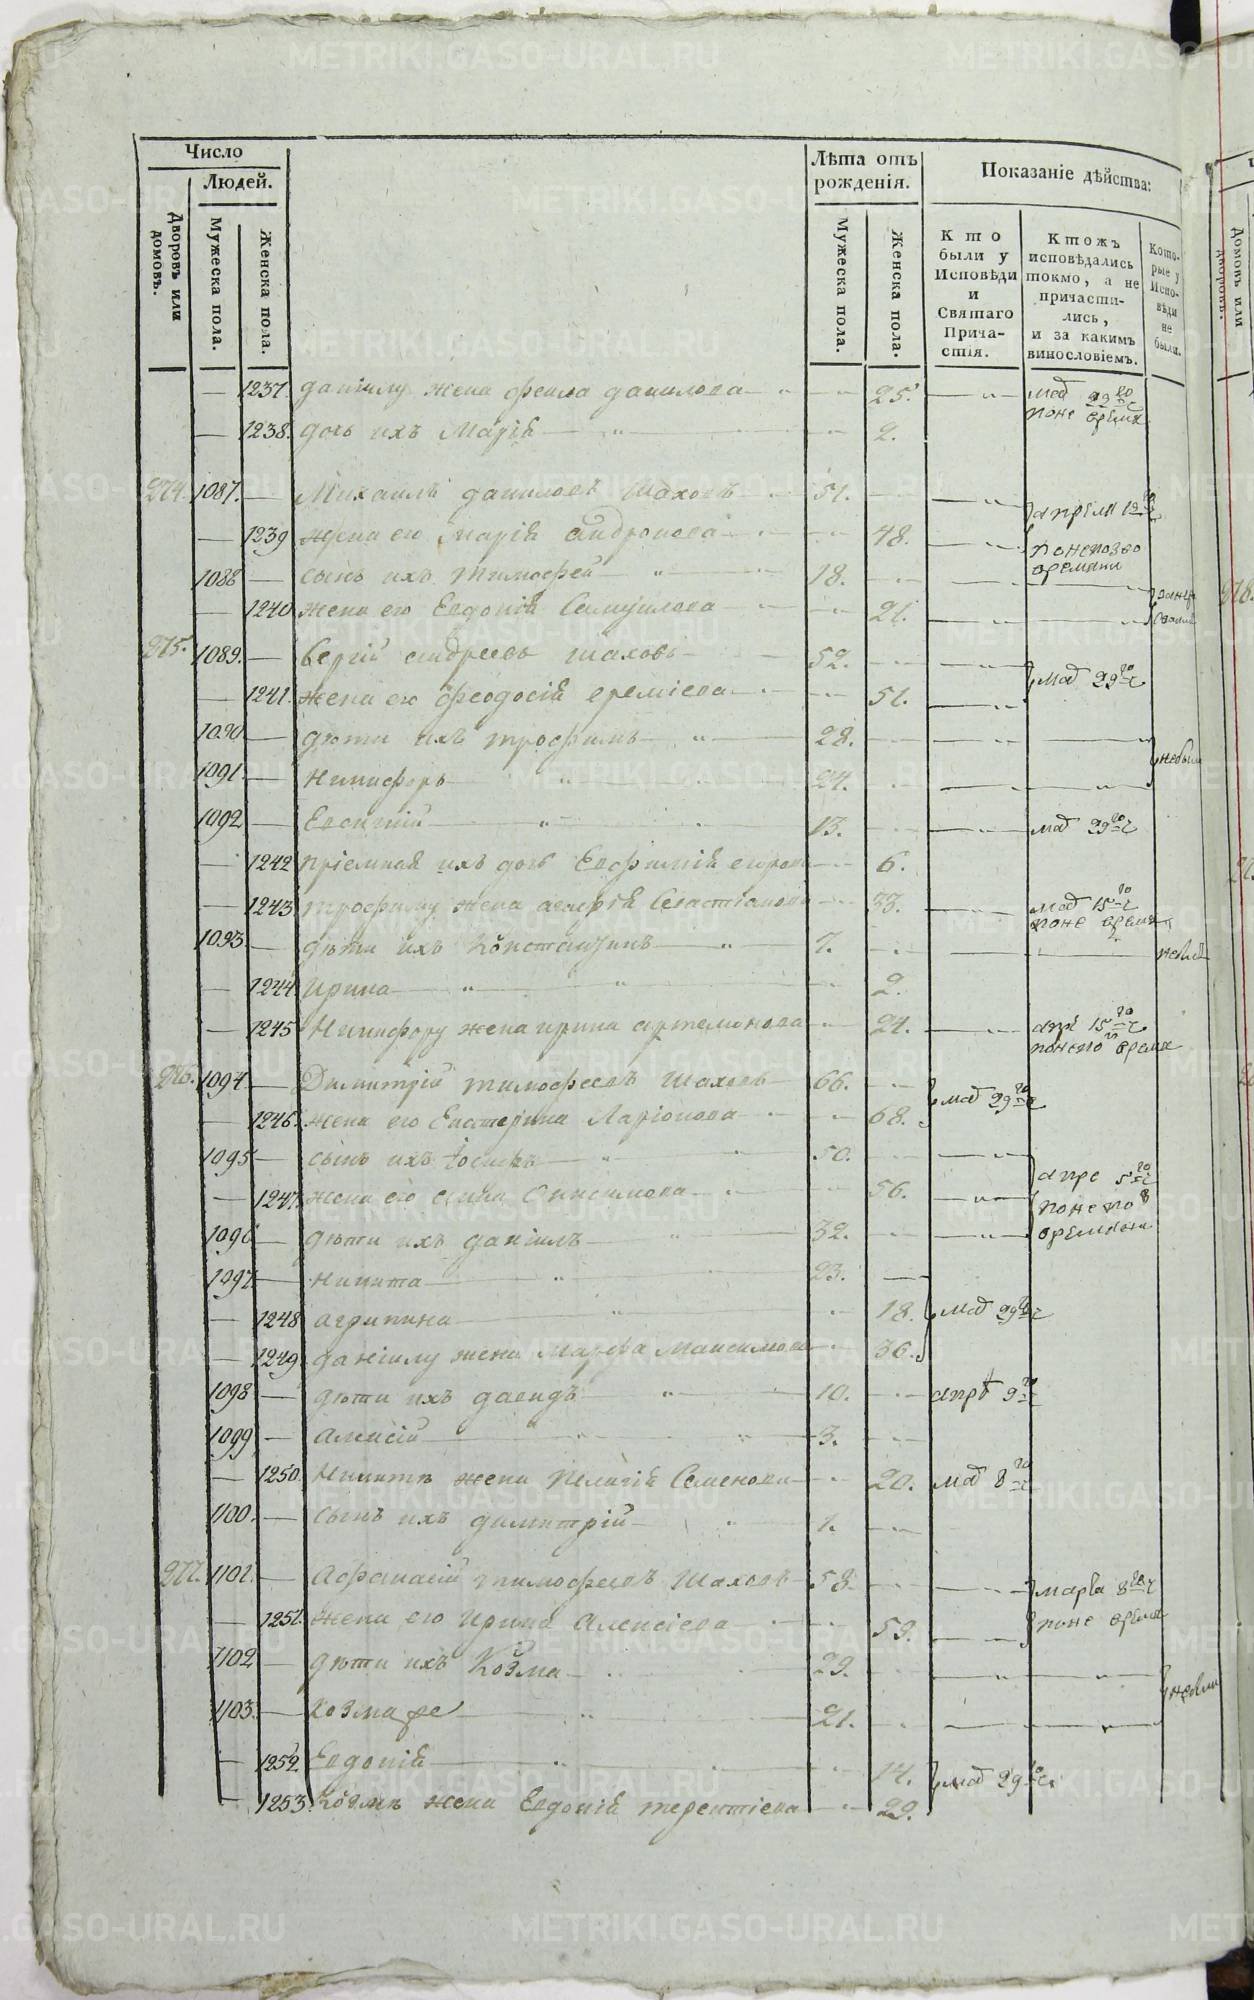 Число
Людей.
Дворовъ или домовъ.
Мужеска пола.
Женска пола.
Лѣта отъ рожденія.
Мужеска пола.
Женска пола.
Показаніе дѣйства:
Кто были у Исповѣди и Святаго Причастія.
Ктожъ исповѣдались токмо, а не причастились, и за какимъ винословіемъ.
Которые у Исповѣди не были.
1237. даніилу жена феила данилова 25. маӕ 29
1238. дочь ихъ Маріӕ 2.
274. 1087. Михаилъ даниловъ Шаховъ 51. апреля
1239 жена его Маріӕ андронова 48.
1088 сынъ ихъ тимофей 18.
1240 жена его Евдокіӕ Самуилова 21.
275. 1089. Сергій андреевъ шаховъ 52. маӕ 29
1241. жена его феодосіӕ еремiева 51.
1090 дѣти ихъ трофимъ 28. небыли
1091. Никифоръ 24.
1092 Евсигній 13. маӕ 29
1242 пріемнаӕ ихъ дочь Евфиміӕ егорова 6.
1243 трофиму жена Севастіанова 33. маӕ 15
1093 дѣти ихъ Константинъ 7.
1244 Ирина 2.
1245 Никифору жена ирина артемонова 24. 15
276. 1094. Димитрій тимофеевъ Шаховъ 66. маӕ 29
1246. жена его Екатерина Ларіонова 68.
1095 сынъ ихъ Іосифъ 50. апре 5
1247. жена его анна Онисимова 56.
1096 дѣти ихъ даніилъ 32.
1097 никита 23.
1248 агрипина 18. маӕ 29
1249. даніилу жена Марѳа Максимова 36.
1098 дѣти ихъ давидъ 10. апрѣ 9
1099 алексій 3.
1250. Никитѣ жена Пелагіӕ Семенова 20. маӕ 8
1100. сынъ ихъ димитрій 1.
277. 1101. Афанасій тимофеевъ Шаховъ 58. марта 8
1251. жена его Ирина Алексіева 59.
1102 дѣти ихъ Козма 29.
1103. Козма же 21.
1252. Евдокіӕ 14. маӕ 29
1253. Козмѣ жена Евдокіӕ терентіева 29.
Домовъ или дворовъ.
278.
METRIKI.GASO-URAL.RU